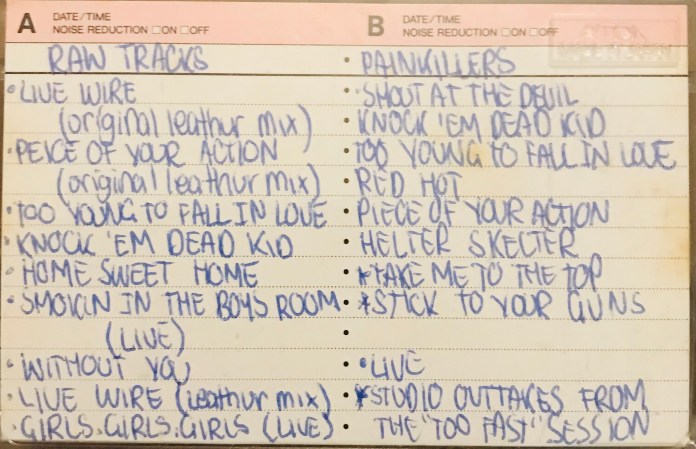 A DATE/TIME
NOISE REDUCTION □ON □OFF
RAW TRACKS
•LIVE WIRE
(original leathur mix)
•PEICE OF YOUR ACTION
(original leathur mix)
•TOO YOUNG TO FALL IN LOVE
•KNOCK 'EM DEAD KID
•HOME SWEET HOME
•SMOKIN IN THE BOYS ROOM
(LIVE)
•WITHOUT YOU
•LIVE WIRE (leathur mix)
•GIRLS.GIRLS.GIRLS (LIVE)
B DATE/TIME
NOISE REDUCTION □ON □OFF
• PAINKILLERS
•SHOUT AT THE DEVIL
•KNOCK 'EM DEAD KID
•TOO YOUNG TO FALL IN LOVE
•RED HOT
•PIECE OF YOUR ACTION
•HELTER SKELTER
•*TAKE ME TO THE TOP
•*STICK TO YOUR GUNS
•LIVE
*STUDIO OUTTAKES FROM
THE "TOO FAST" SESSION